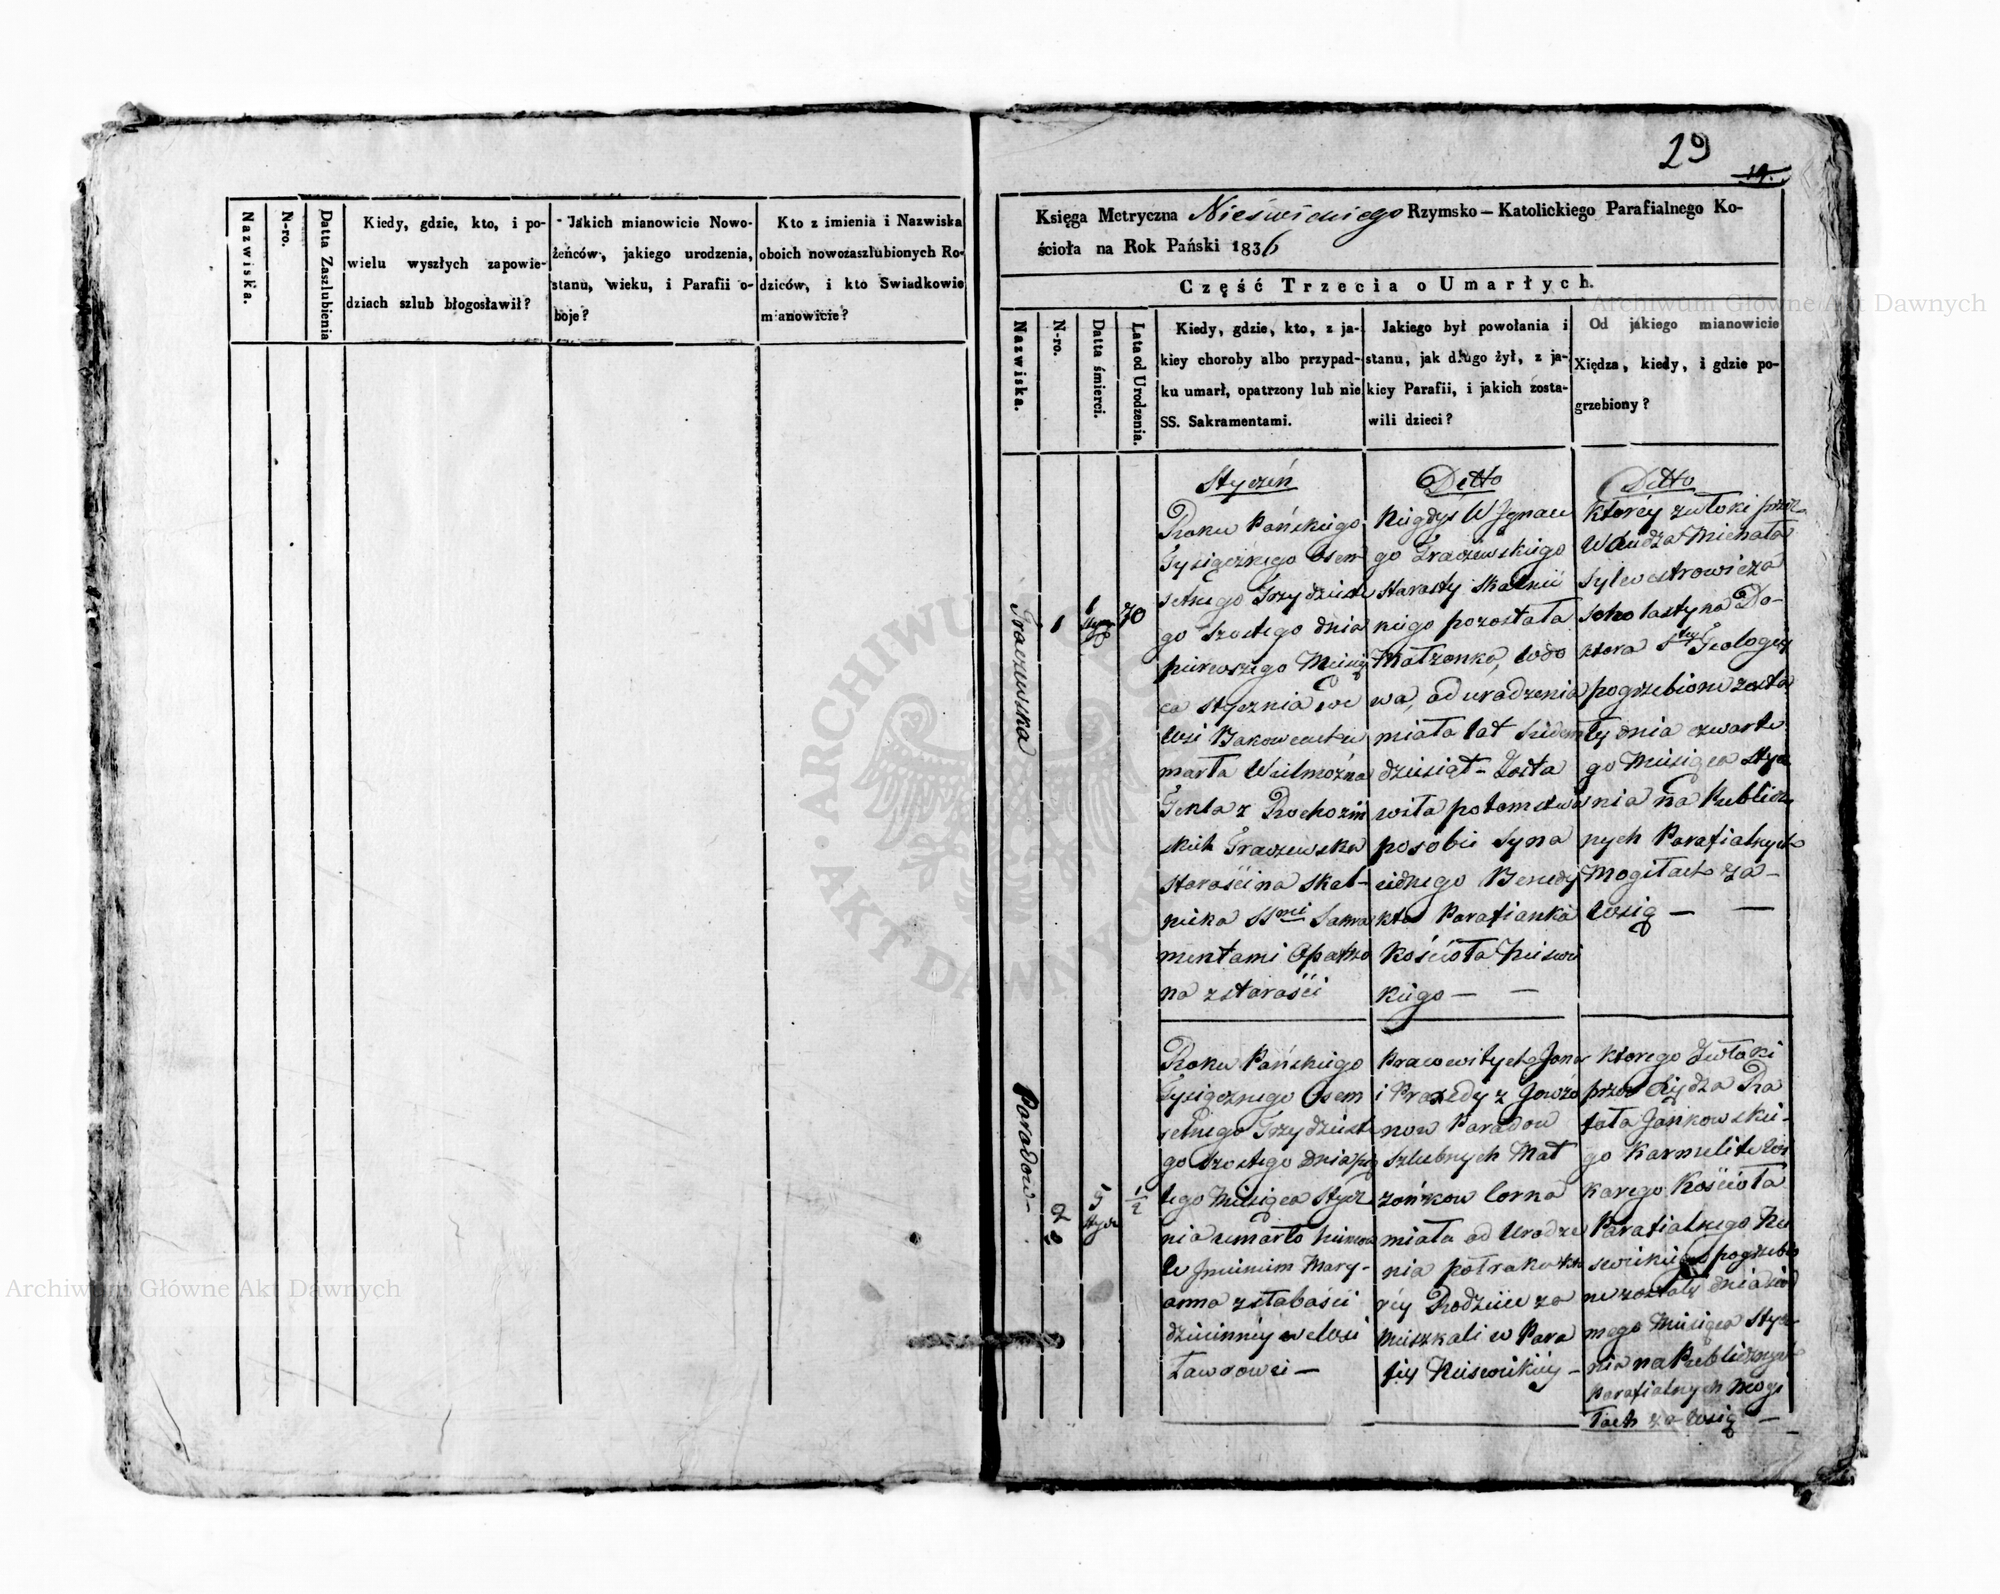 29
14.
Nazwiska.
N-ro.
Datta Zaszlubienia
Kiedy, gdzie, kto, i po-
wielu wyszłych zapowie-
dziach szlub błogosławił?
Jakich mianowicie Nowo-
żeńców, jakiego urodzenia,
stanu, wieku, i Parafii o-
boje?
Kto z imienia i Nazwiska
oboich nowozaszlubionych Ro-
dziców, i kto Swiadkowie
mianowicie?
Księga Metryczna Nieświckiego Rzymsko – Katolickiego Parafialnego Ko-
ścioła na Rok Pański 1836
Część Trzecia o Umarłych.
Nazwiska.
N-ro.
Datta śmierci.
Lata od Urodzenia.
Kiedy, gdzie, kto, z ja-
kiey choroby albo przypad-
ku umarł, opatrzony lub nie
SS. Sakramentami.
Jakiego był powołania i
stanu, jak długo żył, z ja-
kiey Parafii, i jakich zosta-
wili dzieci?
Od jakiego mianowicie
Xiędza, kiedy, i gdzie po-
grzebiony?
Traczewska
1
1
70
Styczeń
Roku Pańskiego
Tysiącznego Osem
setnego Trzydziest
go Szostego dnia
pierwszego Miesią
ca stycznia we
Wsi
marła Wielmożna
Tekla z
skich Traczewska
starościna skal-
nicka SSmi Sakra
mentami Opatrzo
na z starości
Ditto
Niegdyś W Ignace
go Traczewskiego
starosty Skalnic
kiego pozostała
Małżonka, wdo
wa, od urodzenia
miała lat siedem
dziesiąt – Zosta
wiła potomstwa
po sobie syna
iednego Benedy
kta Parafianka
Kościoła Nieswi
kiego —
Ditto
ktorey zwłoki przez
Michała
Sylwestrowicza
Scholastyka Do-
ktora Stey Teologij
pogrzebione zosta
ły dnia czwarte
go Miesiąca stycz
nia na Publicz
nych Parafialnych
Mogiłach za-
Wsią — —
Paradow-
2
5
1/2
Roku Pańskiego
Tysiącznego Osem
setnego Trzydziest
go szostego dnia pią
tego Miesiąca stycz
nia umarło niemo
w Imieniem Mary-
anna z słabości
dziecinney we Wsi
Ławrowei —
Pracowitych Jana
i Praxedy z
now Paradow
szlubnych Mał
żonkow Corka
miała od Urodze
nia połroku kto
rey Rodzice za
mieszkali w Para
fiy Nieswickiiy -
ktorego Zwłoki
przez Xiędza Ra
fała Jankowskie-
go Karmelite Wi
karego Kościoła
Parafialnego Nie
swickiego pogrzebio
ne zostały dnia siod
mego Miesiąca Stycz
nia na Publicznych
Parafialnych Mogi
łach za wsią —
Archiwum Główne Akt Dawnych
Archiwum Główne Akt Dawnych
ARCHIWUM GŁÓWNE AKT DAWNYCH